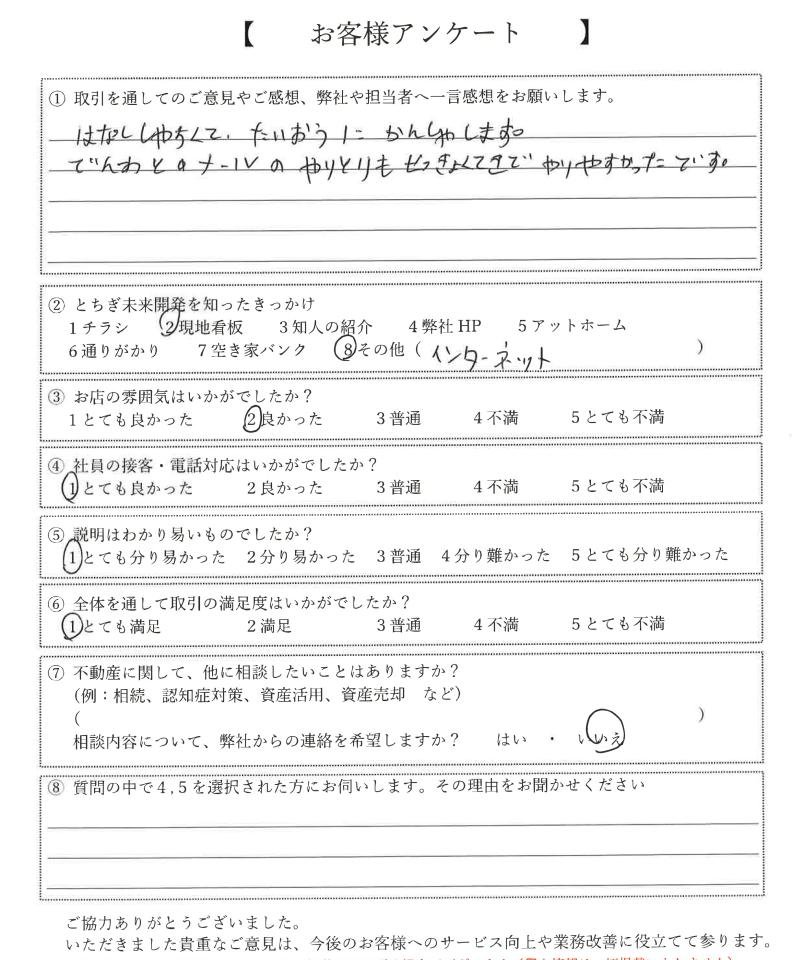 【 お客様アンケート 】
① 取引を通してのご意見やご感想、弊社や担当者へ一言感想をお願いします。
はなししやすくて、たいおうに かんしゃします。
でんわとメールの やりとりも せっきょくてきで やりやすかったです。
② とちぎ未来開発を知ったきっかけ
1チラシ 2現地看板 3知人の紹介 4弊社HP 5アットホーム
6通りがかり 7空き家バンク 8その他( インターネット )
③ お店の雰囲気はいかがでしたか?
1とても良かった 2良かった 3普通 4不満 5とても不満
④ 社員の接客・電話対応はいかがでしたか?
1とても良かった 2良かった 3普通 4不満 5とても不満
⑤ 説明はわかり易いものでしたか?
1とても分り易かった 2分り易かった 3普通 4分り難かった 5とても分り難かった
⑥ 全体を通して取引の満足度はいかがでしたか?
1とても満足 2満足 3普通 4不満 5とても不満
⑦ 不動産に関して、他に相談したいことはありますか?
(例:相続、認知症対策、資産活用、資産売却 など)
( )
相談内容について、弊社からの連絡を希望しますか? はい ・ いいえ
⑧ 質問の中で4,5を選択された方にお伺いします。その理由をお聞かせください
ご協力ありがとうございました。
いただきました貴重なご意見は、今後のお客様へのサービス向上や業務改善に役立てて参ります。